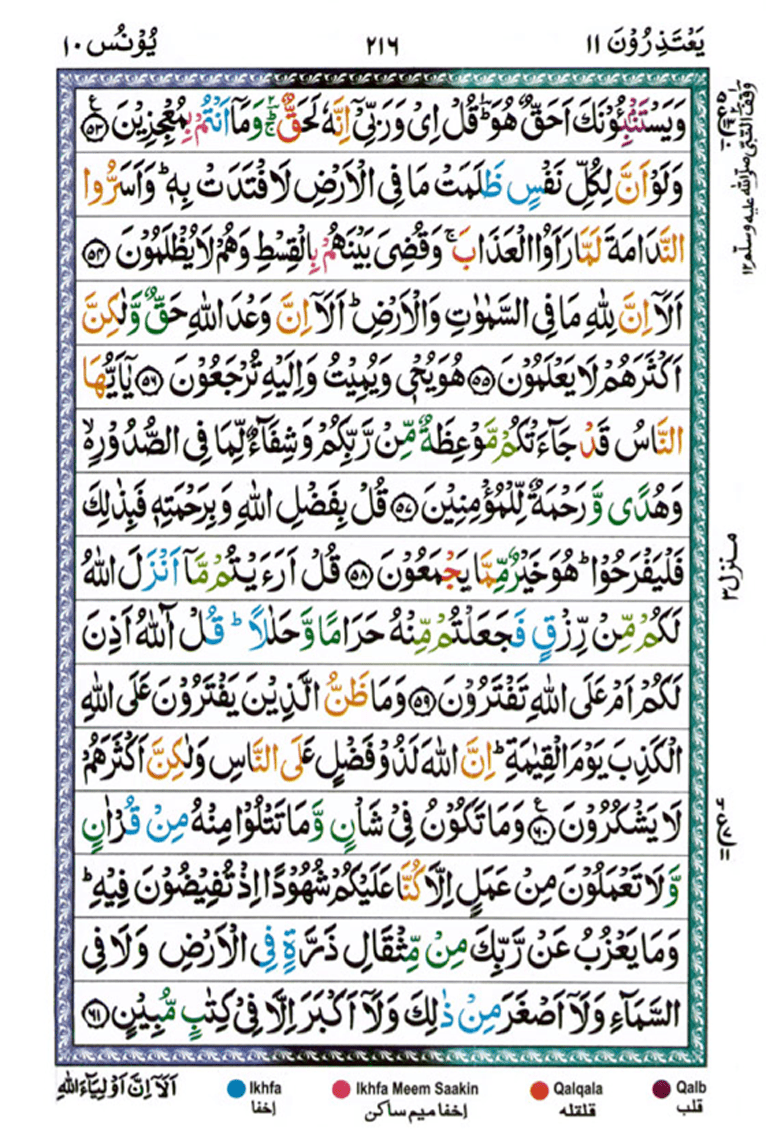 يَعْتَذِرُوْنَ ١١
٢١٦
يُوْنُس ١٠
وَيَسْتَنْۢبِـُٔوْنَكَ اَحَقٌّ هُوَ ؕ قُلْ اِىْ وَرَبِّىْۤ اِنَّهٗ لَحَقٌّ ؔؕ وَمَاۤ اَنْتُمْ بِمُعْجِزِيْنَ ﴿۵۳﴾
وَلَوْ اَنَّ لِكُلِّ نَفْسٍ ظَلَمَتْ مَا فِى الْاَرْضِ لَافْتَدَتْ بِهٖ ؕ وَاَسَرُّوا
النَّدَامَةَ لَمَّا رَاَوُا الْعَذَابَ ۚ وَقُضِىَ بَيْنَهُمْ بِالْقِسْطِ وَهُمْ لَا يُظْلَمُوْنَ ﴿۵۴﴾
اَلَاۤ اِنَّ لِلّٰهِ مَا فِى السَّمٰوٰتِ وَالْاَرْضِ ؕ اَلَاۤ اِنَّ وَعْدَ اللّٰهِ حَقٌّ وَّلٰكِنَّ
اَكْثَرَهُمْ لَا يَعْلَمُوْنَ ﴿۵۵﴾ هُوَ يُحْىٖ وَيُمِيْتُ وَاِلَيْهِ تُرْجَعُوْنَ ﴿۵۶﴾ يٰۤاَيُّهَا
النَّاسُ قَدْ جَآءَتْكُمْ مَّوْعِظَةٌ مِّنْ رَّبِّكُمْ وَشِفَآءٌ لِّمَا فِى الصُّدُوْرِ ۙ
وَهُدًى وَّرَحْمَةٌ لِّلْمُؤْمِنِيْنَ ﴿۵۷﴾ قُلْ بِفَضْلِ اللّٰهِ وَبِرَحْمَتِهٖ فَبِذٰلِكَ
فَلْيَفْرَحُوْا ؕ هُوَ خَيْرٌ مِّمَّا يَجْمَعُوْنَ ﴿۵۸﴾ قُلْ اَرَءَيْتُمْ مَّاۤ اَنْزَلَ اللّٰهُ
لَكُمْ مِّنْ رِّزْقٍ فَجَعَلْتُمْ مِّنْهُ حَرَامًا وَّحَلٰلًا ؕ قُلْ آٰللّٰهُ اَذِنَ
لَكُمْ اَمْ عَلَى اللّٰهِ تَفْتَرُوْنَ ﴿۵۹﴾ وَمَا ظَنُّ الَّذِيْنَ يَفْتَرُوْنَ عَلَى اللّٰهِ
الْكَذِبَ يَوْمَ الْقِيٰمَةِ ؕ اِنَّ اللّٰهَ لَذُوْ فَضْلٍ عَلَى النَّاسِ وَلٰكِنَّ اَكْثَرَهُمْ
لَا يَشْكُرُوْنَ ﴿۶۰﴾ وَمَا تَكُوْنُ فِىْ شَاْنٍ وَّمَا تَتْلُوْا مِنْهُ مِنْ قُرْاٰنٍ
وَّلَا تَعْمَلُوْنَ مِنْ عَمَلٍ اِلَّا كُنَّا عَلَيْكُمْ شُهُوْدًا اِذْ تُفِيْضُوْنَ فِيْهِ ؕ
وَمَا يَعْزُبُ عَنْ رَّبِّكَ مِنْ مِّثْقَالِ ذَرَّةٍ فِى الْاَرْضِ وَلَا فِى
السَّمَآءِ وَلَاۤ اَصْغَرَ مِنْ ذٰلِكَ وَلَاۤ اَكْبَرَ اِلَّا فِىْ كِتٰبٍ مُّبِيْنٍ ﴿۶۱﴾
وقف النبي صلى الله عليه وسلم ١٢
منزل ٣
اَلَاۤ اِنَّ اَوْلِيَآءَ اللّٰهِ
Ikhfa
اِخفا
Ikhfa Meem Saakin
اِخفا میم ساکن
Qalqala
قلقله
Qalb
قلب